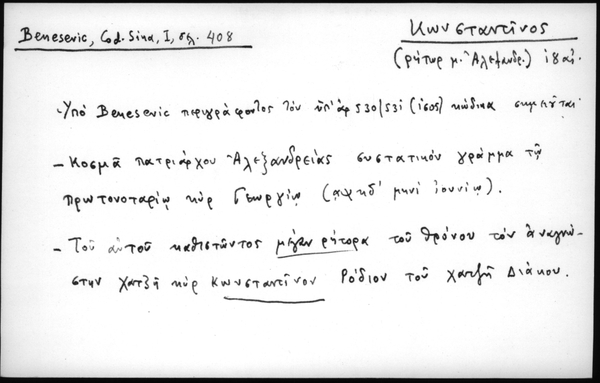 Benesevic, Cod. Sina, I, σελ. 408
Κωνσταντῖνος
(ρήτωρ μ. Ἀλεξανδρ.) ιηʹ αἰ.
Ὑπὸ Benesevic περιγράφοντος τὸν ὑπ' ἀρ 530/531 (1505) κώδικα σημειοῦται
- Κοσμᾶ πατριάρχου Ἀλεξανδρείας συστατικόν γράμμα τῷ
πρωτονοταρίῳ κὺρ Γεωργίῳ (αψκδ' μηνὶ ἰουνίῳ).
- Τοῦ αὐτοῦ καθιστῶντος μέγαν ρήτορα τοῦ θρόνου τὸν ἀναγνώ-
στην χατζῆ κὺρ Κωνσταντῖνον Ρόδιον τοῦ χατζῆ Διάκου.